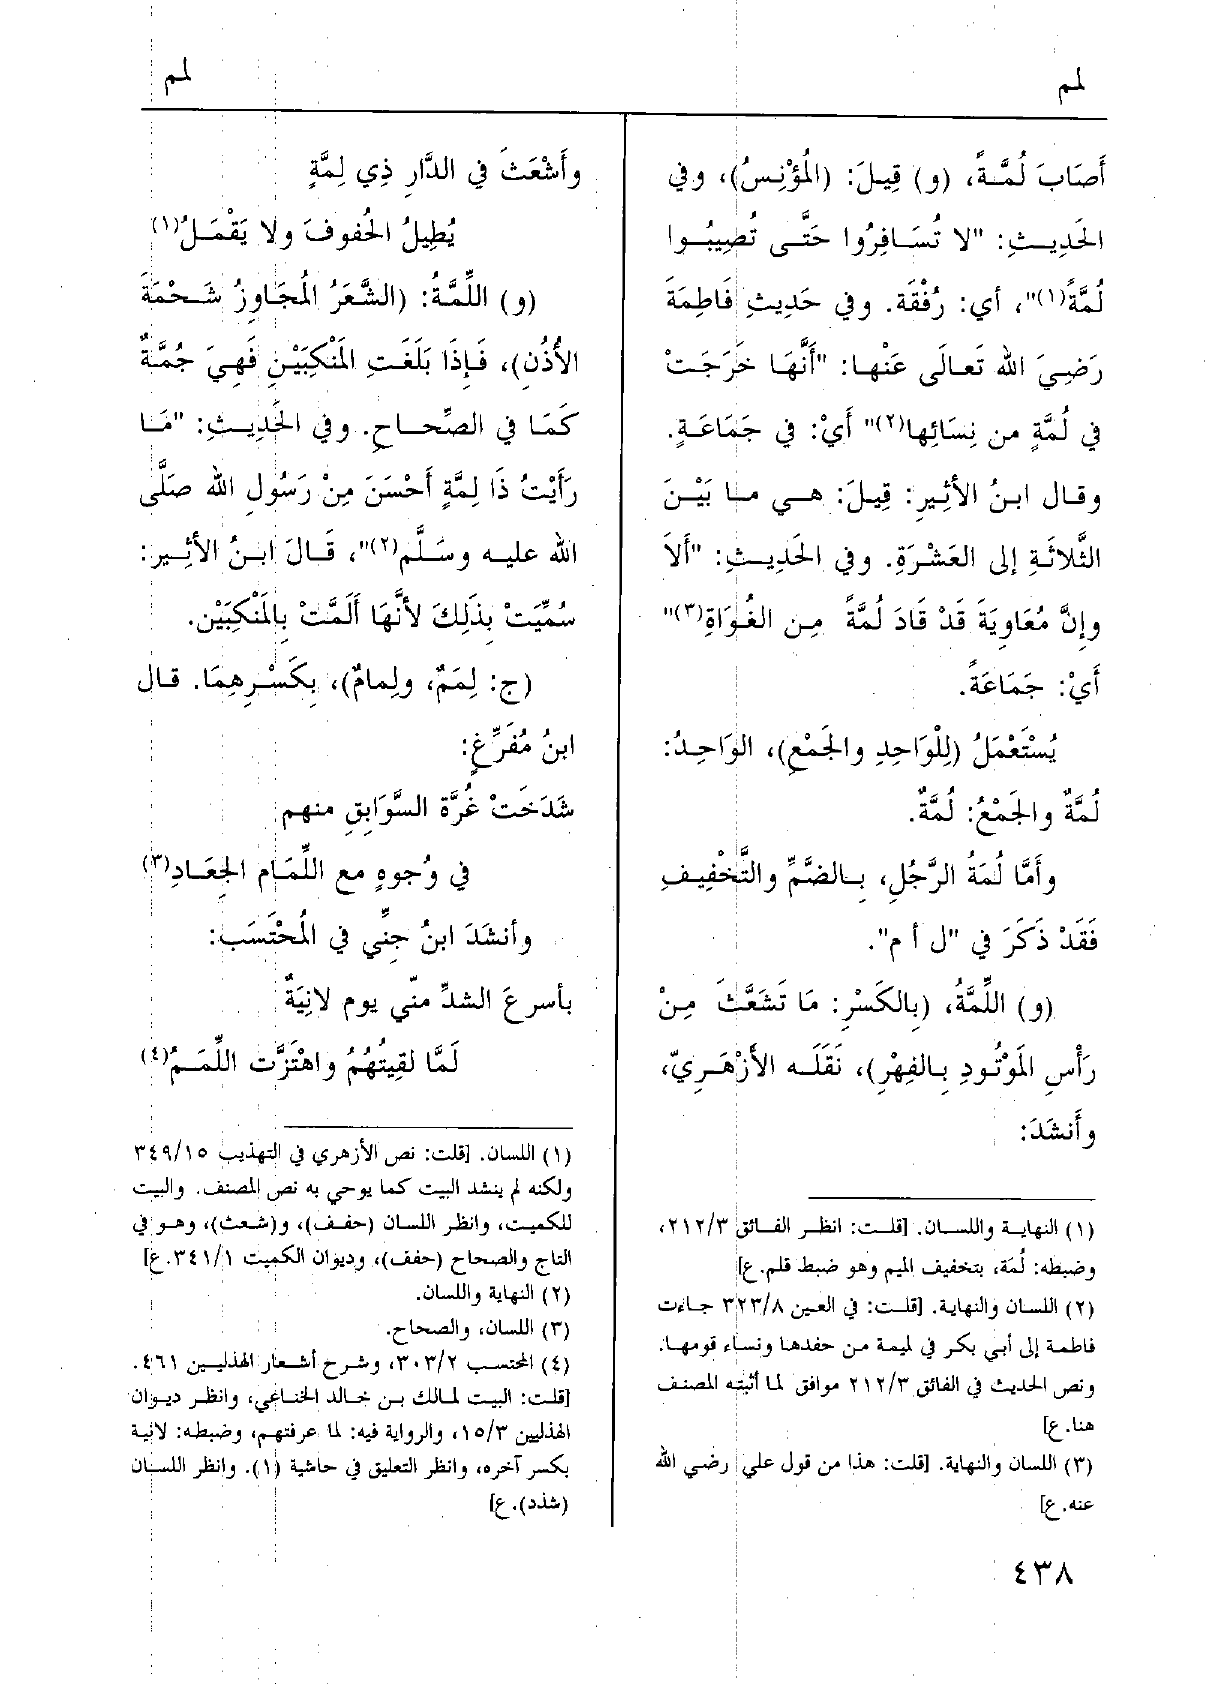 لمم
لمم
أَصَابَ لُمَّةً، (و) قِيلَ: (المُؤْنِسُ)، وفي
الحَدِيثِ: "لا تُسَافِرُوا حَتَّى تُصِيبُوا
لُمَّةً(١)"، أي: رُفْقَة. وفي حَدِيثِ فَاطِمَةَ
رَضِيَ الله تَعالَى عَنْها: "أَنَّهَا خَرَجَتْ
في لُمَّةٍ من نِسَائِها(٢)" أيْ: في جَمَاعَةٍ.
وقال ابنُ الأَثِيرِ: قِيلَ: هي ما بَيْنَ
الثَّلاثَةِ إلى العَشْرَةِ. وفي الحَدِيثِ: "أَلاَ
وإنَّ مُعَاوِيَةَ قَدْ قَادَ لُمَّةً مِن الغُوَاةِ(٣)"
أيْ: جَمَاعَةً.
يُسْتَعْمَلُ (لِلْوَاحِدِ والجَمْعِ)، الوَاحِدُ:
لُمَّةٌ والجَمْعُ: لُمَّةٌ.
وأَمَّا لُمَةُ الرَّجُلِ، بِالضَّمِّ والتَّخْفِيفِ
فَقَدْ ذَكَرَ في "ل أ م".
(و) اللِّمَّةُ، (بِالكَسْرِ: مَا تَشَعَّثَ مِنْ
رَأْسِ المَوْتُودِ بِالفِهْرِ)، نَقَلَه الأَزْهَرِيّ،
وأَنشَدَ:
(١) النهاية واللسان. [قلت: انظر الفائق ٢١٢/٣،
وضبطه: لُمَة، بتخفيف الميم وهو ضبط قلم. ع]
(٢) اللسان والنهاية. [قلت: في العين ٣٢٣/٨ جاءت
فاطمة إلى أبي بكر في لميمة من حفدها ونساء قومها.
ونص الحديث في الفائق ٢١٢/٣ موافق لما أثبته المصنف
هنا. ع]
(٣) اللسان والنهاية. [قلت: هذا من قول علي رضي الله
عنه. ع]
وأَشْعَثَ في الدَّارِ ذِي لِمَّةٍ
يُطِيلُ الحُفوفَ ولا يَقْمَلُ(١)
(و) اللِّمَّةُ: (الشَّعَرُ المُجَاوِزُ شَحْمَةَ
الأُذُنِ)، فَإِذَا بَلَغَتِ المَنْكِبَيْنِ فَهِيَ جُمَّةٌ
كَمَا في الصِّحاحِ. وفي الحَدِيثِ: "مَا
رَأَيْتُ ذَا لِمَّةٍ أَحْسَنَ مِنْ رَسُولِ الله صَلَّى
الله عليه وسَلَّم(٢)"، قَالَ ابنُ الأَثِيرِ:
سُمِّيَتْ بِذَلِكَ لأَنَّهَا أَلَمَّتْ بِالمَنْكِبَيْنِ.
(ج: لِمَمٌ، ولِمامٌ)، بِكَسْرِهِمَا. قال
ابنُ مُفَرِّغٍ:
شَدَخَتْ غُرَّة السَّوَابِقِ منهم
في وُجوهٍ مع اللِّمَامِ الجِعَادِ(٣)
وأنشَدَ ابنُ جِنِّي في المُحْتَسَبِ:
بأسرعَ الشدِّ منّي يوم لانِيَةٌ
لَمَّا لقِيتُهُمُ واهْتَزَّت اللِّمَمُ(٤)
(١) اللسان. [قلت: نص الأزهري في التهذيب ٣٤٩/١٥
ولكنه لم ينشد البيت كما يوحي به نص المصنف. والبيت
للكميت، وانظر اللسان (حفف)، و(شعث)، وهو في
التاج والصحاح (حفف)، وديوان الكميت ٣٤١/١. ع]
(٢) النهاية واللسان.
(٣) اللسان، والصحاح.
(٤) المحتسب ٣٠٣/٢، وشرح أشعار الهذليين ٤٦١.
[قلت: البيت لمالك بن خالد الخناعي، وانظر ديوان
الهذليين ١٥/٣، والرواية فيه: لما عرفتهم، وضبطه: لانية
بكسر آخره، وانظر التعليق في حاشية (١). وانظر اللسان
(شذد). ع]
٤٣٨